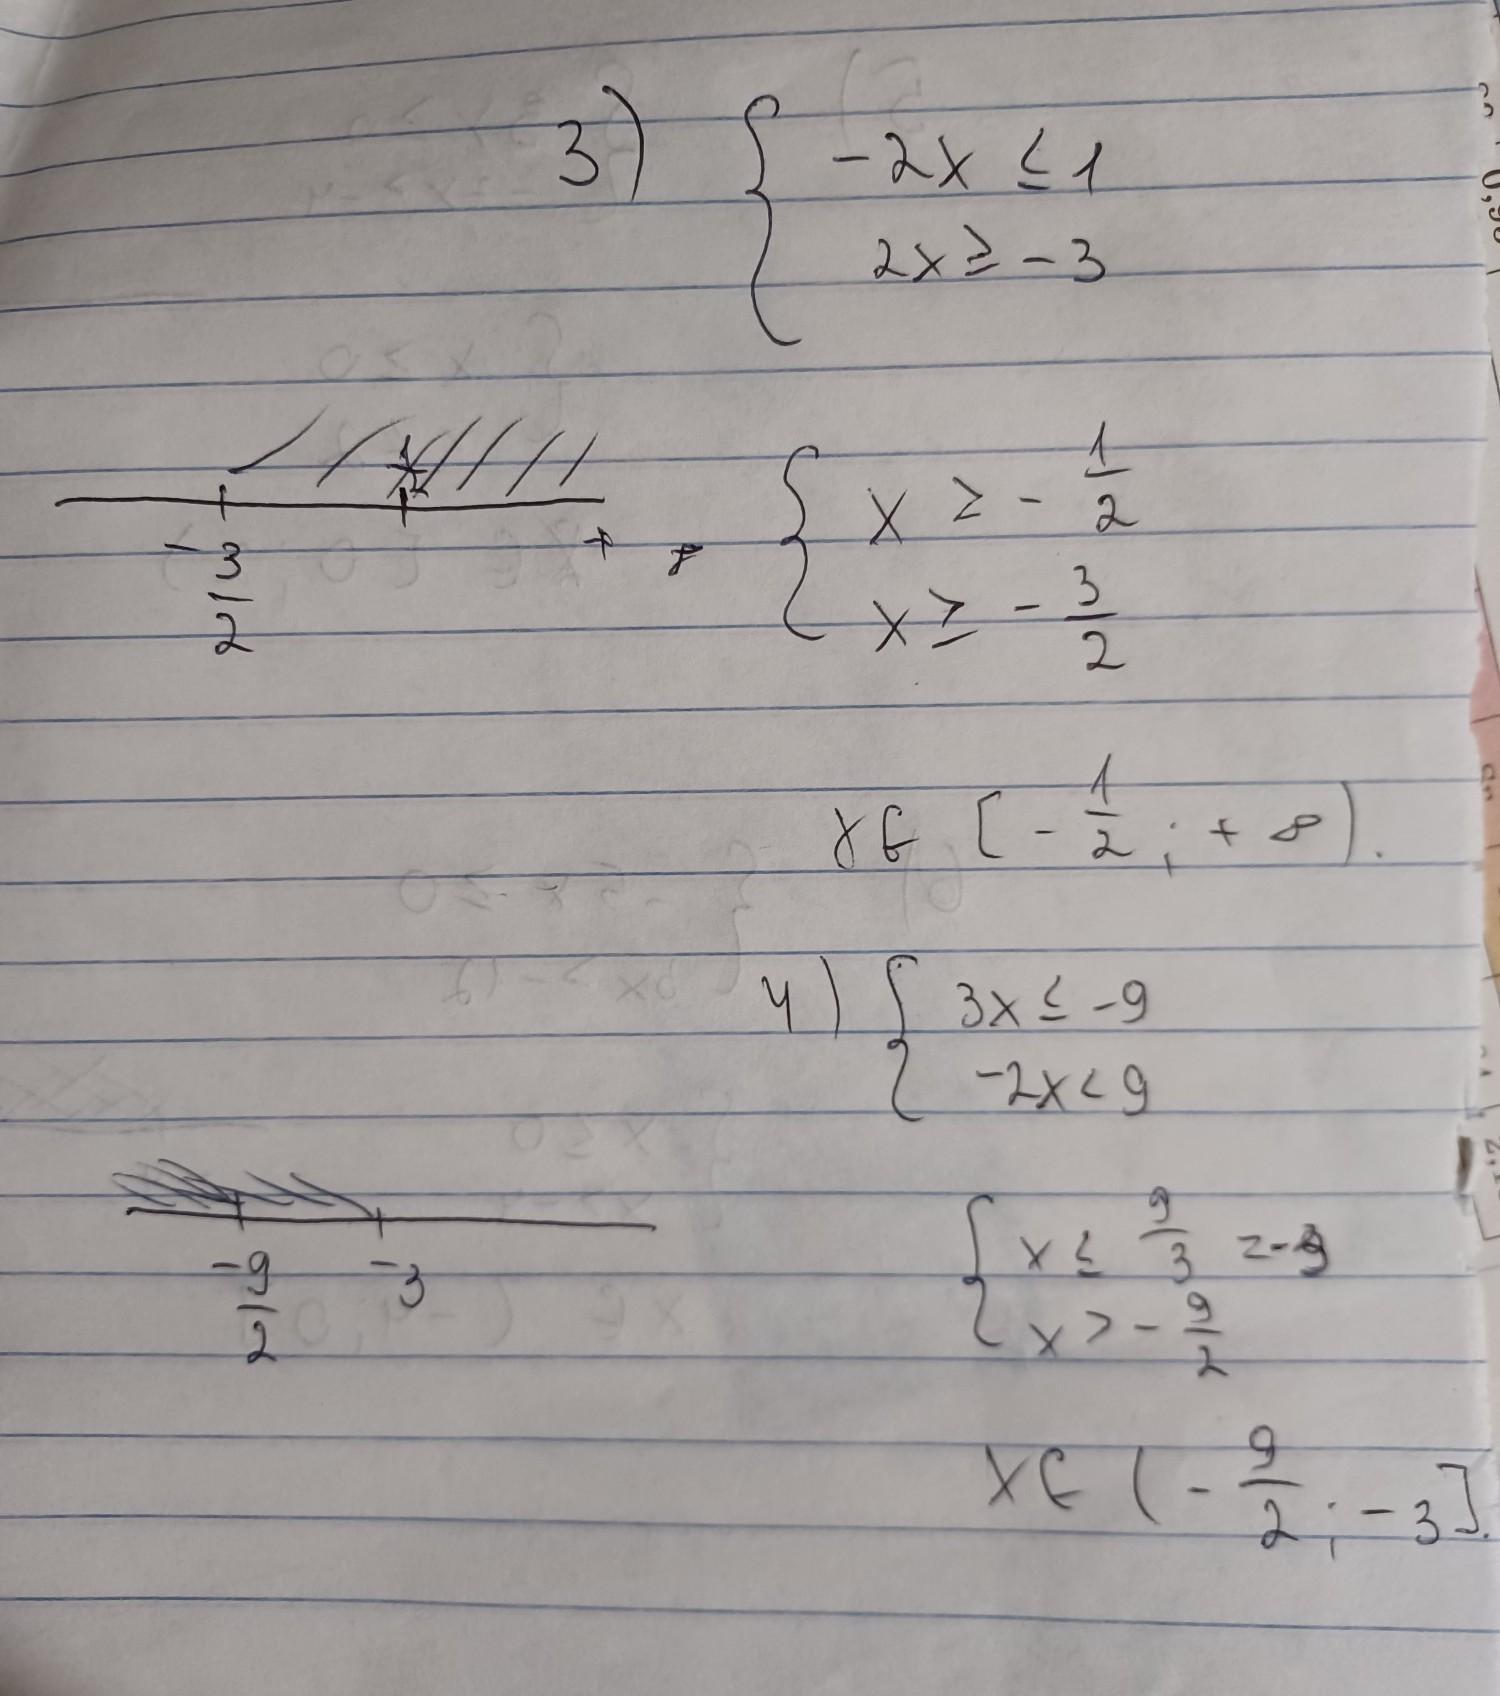 3) { -2x ≤ 1
2x ≥ -3
-3/2
+
{ x ≥ - 1/2
x ≥ - 3/2
x ∈ [ - 1/2 ; + ∞ ).
4) { 3x ≤ -9
-2x < 9
-9/2 -3
{ x ≤ 9/3 = -3
x > - 9/2
x ∈ ( - 9/2 ; -3 ].